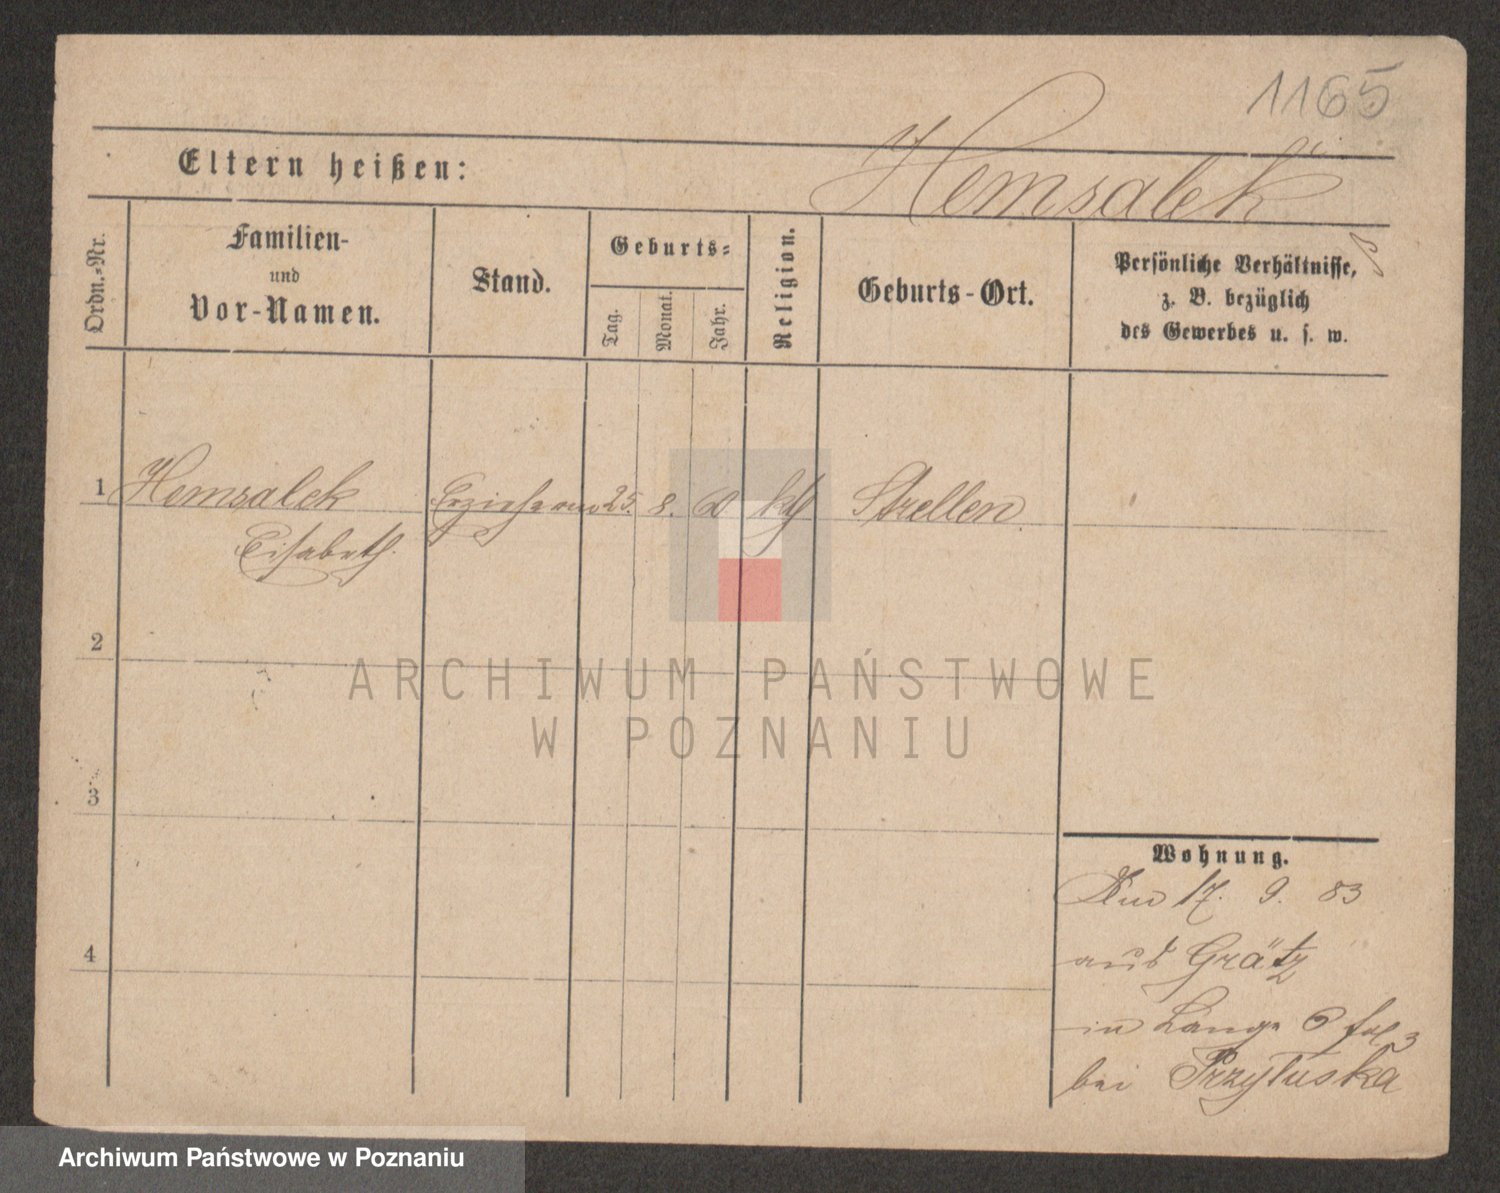 1165
Eltern heißen:
Hemsalek
Ordn.-Nr.
Familien-
und
Vor-Namen.
Stand.
Geburts-
Tag.
Monat.
Jahr.
Religion.
Geburts-Ort.
Persönliche Verhältnisse,
z. B. bezüglich
des Gewerbes u. s. w.
1 Hemsalek Erzieherin 25. 8. 60 kth Strellen
Elisabeth.
2
ARCHIWUM PAŃSTWOWE
W POZNANIU
3
Wohnung.
Am 17. 9. 83
4
aus Grätz
in Lange 6
bei Przyluska
Archiwum Państwowe w Poznaniu